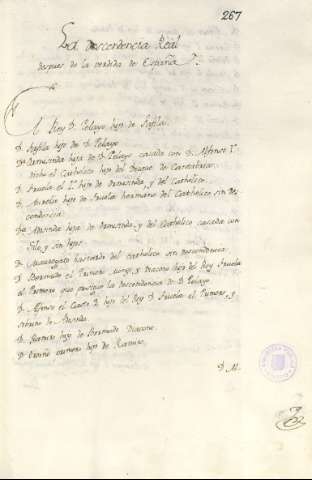 267
La descendencia Real
despues de la perdida de España.
El Rey D. Pelayo hijo de Fafila.
D. Fafila hijo de D. Pelayo
Da. Ormisinda hija de D. Pelayo casada con D. Alfonso 1º
dicho el Catholico hijo del Duque de Cantabria.
D. Fruela el 1º hijo de Ormisinda, y del Catholico.
D. Aurelio hijo de Fruela hermano del Catholico sin des
cendencia.
Da. Adosinda hija de Ormisinda, y del Catholico casada con
Silo, y sin hijos.
D. Mauregato bastardo del Catholico sin descendencia
D. Bermudo el Primero Monje, y Diacono hijo del Rey Fruela
el Primero que prosigue la descendencia de D. Pelayo
D. Alfonso el Casto 2 hijo del Rey D. Fruela el Primero, y
D. Ramiro hijo de Bermudo Diacono.
D. Ordoño primero hijo de Ramiro.
D. Al.